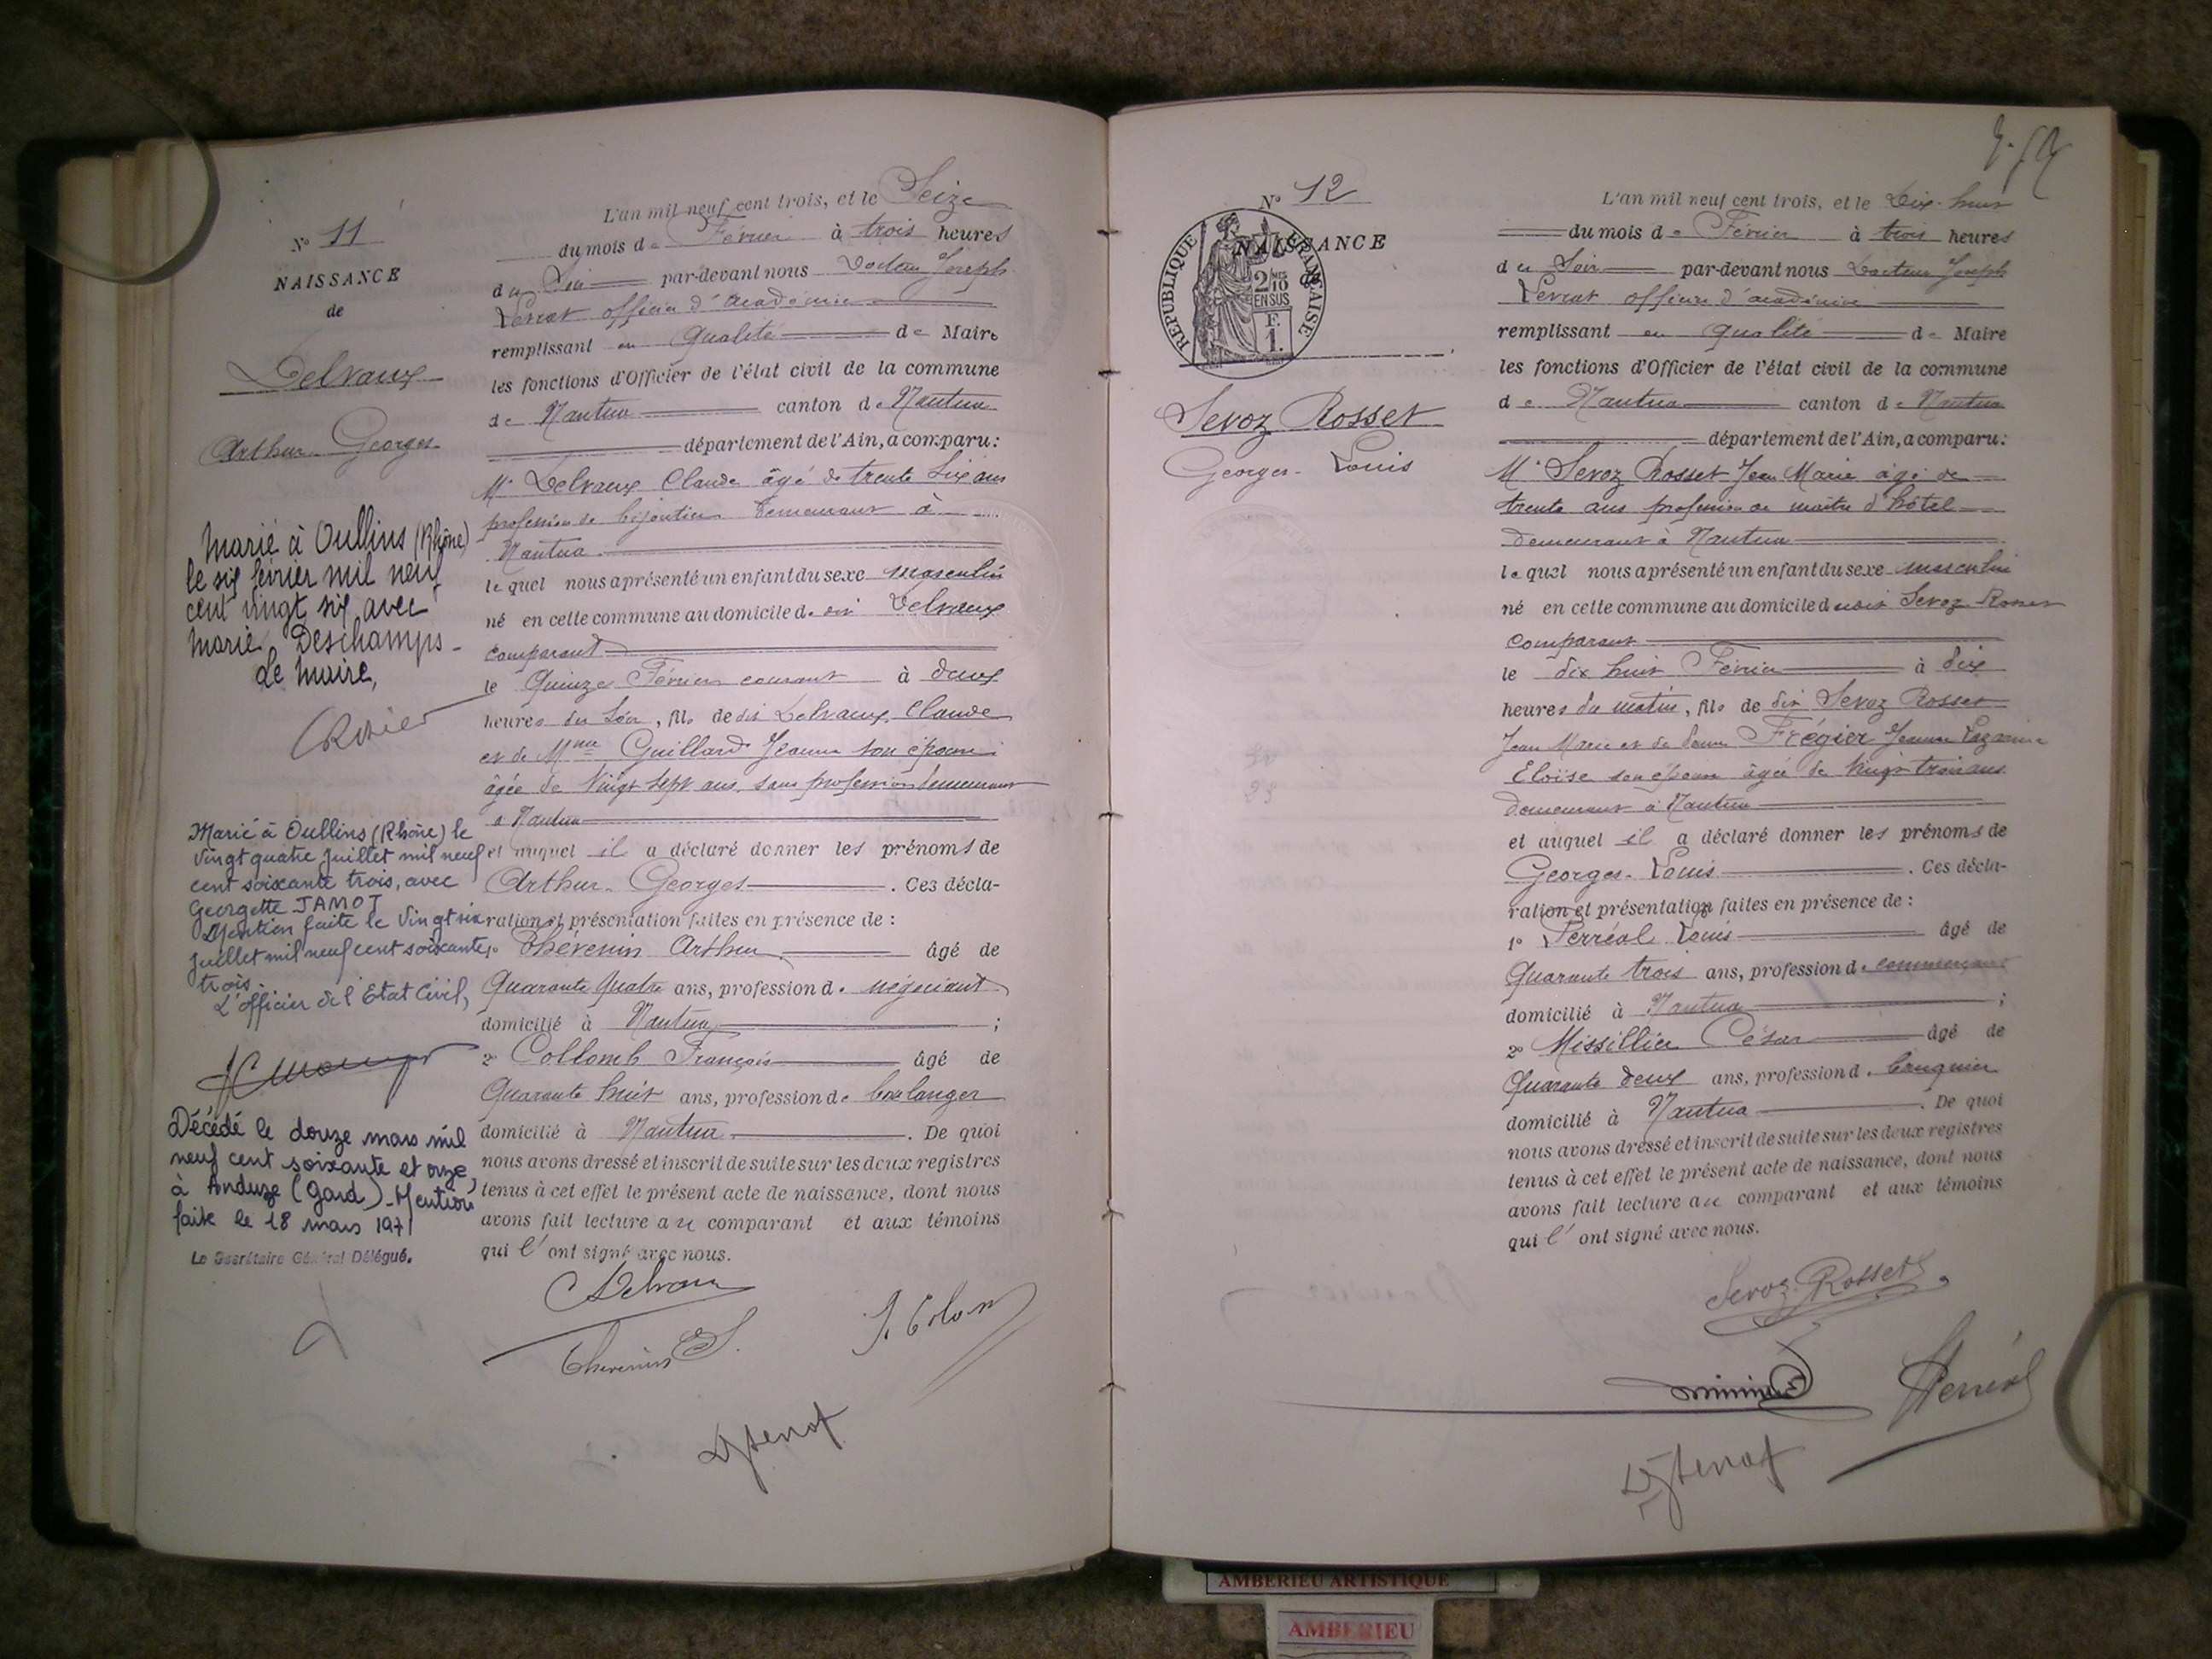 N° 11
NAISSANCE
de
Delvaux
Arthur Georges
Marié à Oullins (Rhône)
le six février mil neuf
cent vingt six avec
Marie Deschamps -
Le Maire,
Marié à Oullins (Rhône) le
vingt quatre juillet mil neuf
cent soixante trois, avec
Georgette JAMOT
Mention faite le vingt six
juillet mil neuf cent soixante
trois.
L'officier de l'Etat Civil,
Décédé le douze mars mil
neuf cent soixante et onze,
à Anduze (Gard) - Mention
faite le 18 mars 1971
Le Secrétaire Général Délégué.
L'an mil neuf cent trois, et le Seize
du mois de Février à trois heures
du Soir par-devant nous Docteur Joseph
Levrat officier d'académie
remplissant en qualité de Maire
les fonctions d'Officier de l'état civil de la commune
de Nantua canton de Nantua
département de l'Ain, a comparu:
Mr Delvaux Claude âgé de trente six ans
profession de bijoutier demeurant à
Nantua
lequel nous a présenté un enfant du sexe masculin
né en cette commune au domicile de dit Delvaux
comparant
le Quinze Février courant à deux
heures du soir, fils de dit Delvaux Claude
et de Mme Guillard Jeanne son épouse
âgée de vingt sept ans, sans profession demeurant
à Nantua
et auquel il a déclaré donner les prénoms de
Arthur Georges. Ces décla-
ration et présentation faites en présence de :
1° Thévenin Arthur âgé de
Quarante quatre ans, profession de négociant
domicilié à Nantua ;
2° Collomb François âgé de
Quarante huit ans, profession de boulanger
domicilié à Nantua. De quoi
nous avons dressé et inscrit de suite sur les deux registres
tenus à cet effet le présent acte de naissance, dont nous
avons fait lecture au comparant et aux témoins
qui l'ont signé avec nous.
C Delvaux
Thevenin
N° 12
NAISSANCE
de
REPUBLIQUE FRANÇAISE
2/10 EN SUS
F.
1.
Sevoz Rosset
Georges - Louis
L'an mil neuf cent trois, et le Dix-huit
du mois de Février à trois heures
du Soir par-devant nous Docteur Joseph
Levrat officier d'académie
remplissant en qualité de Maire
les fonctions d'Officier de l'état civil de la commune
de Nantua canton de Nantua
département de l'Ain, a comparu:
Mr Sevoz Rosset Jean Marie âgé de
trente ans profession de maître d'hôtel
demeurant à Nantua
lequel nous a présenté un enfant du sexe masculin
né en cette commune au domicile du dit Sevoz Rosset
comparant
le dix huit Février à dix
heures du matin, fils de dit Sevoz Rosset
Jean Marie et de dame Frégier Jeanne
Eloïse son épouse âgée de vingt trois ans
demeurant à Nantua
et auquel il a déclaré donner les prénoms de
Georges - Louis. Ces décla-
ration et présentation faites en présence de :
1° Perréal Louis âgé de
Quarante trois ans, profession de commerçant
domicilié à Nantua ;
2° Missillier César âgé de
Quarante deux ans, profession de banquier
domicilié à Nantua. De quoi
nous avons dressé et inscrit de suite sur les deux registres
tenus à cet effet le présent acte de naissance, dont nous
avons fait lecture au comparant et aux témoins
qui l'ont signé avec nous.
Sevoz-Rosset
Perréal
AMBERIEU ARTISTIQUE
AMBERIEU